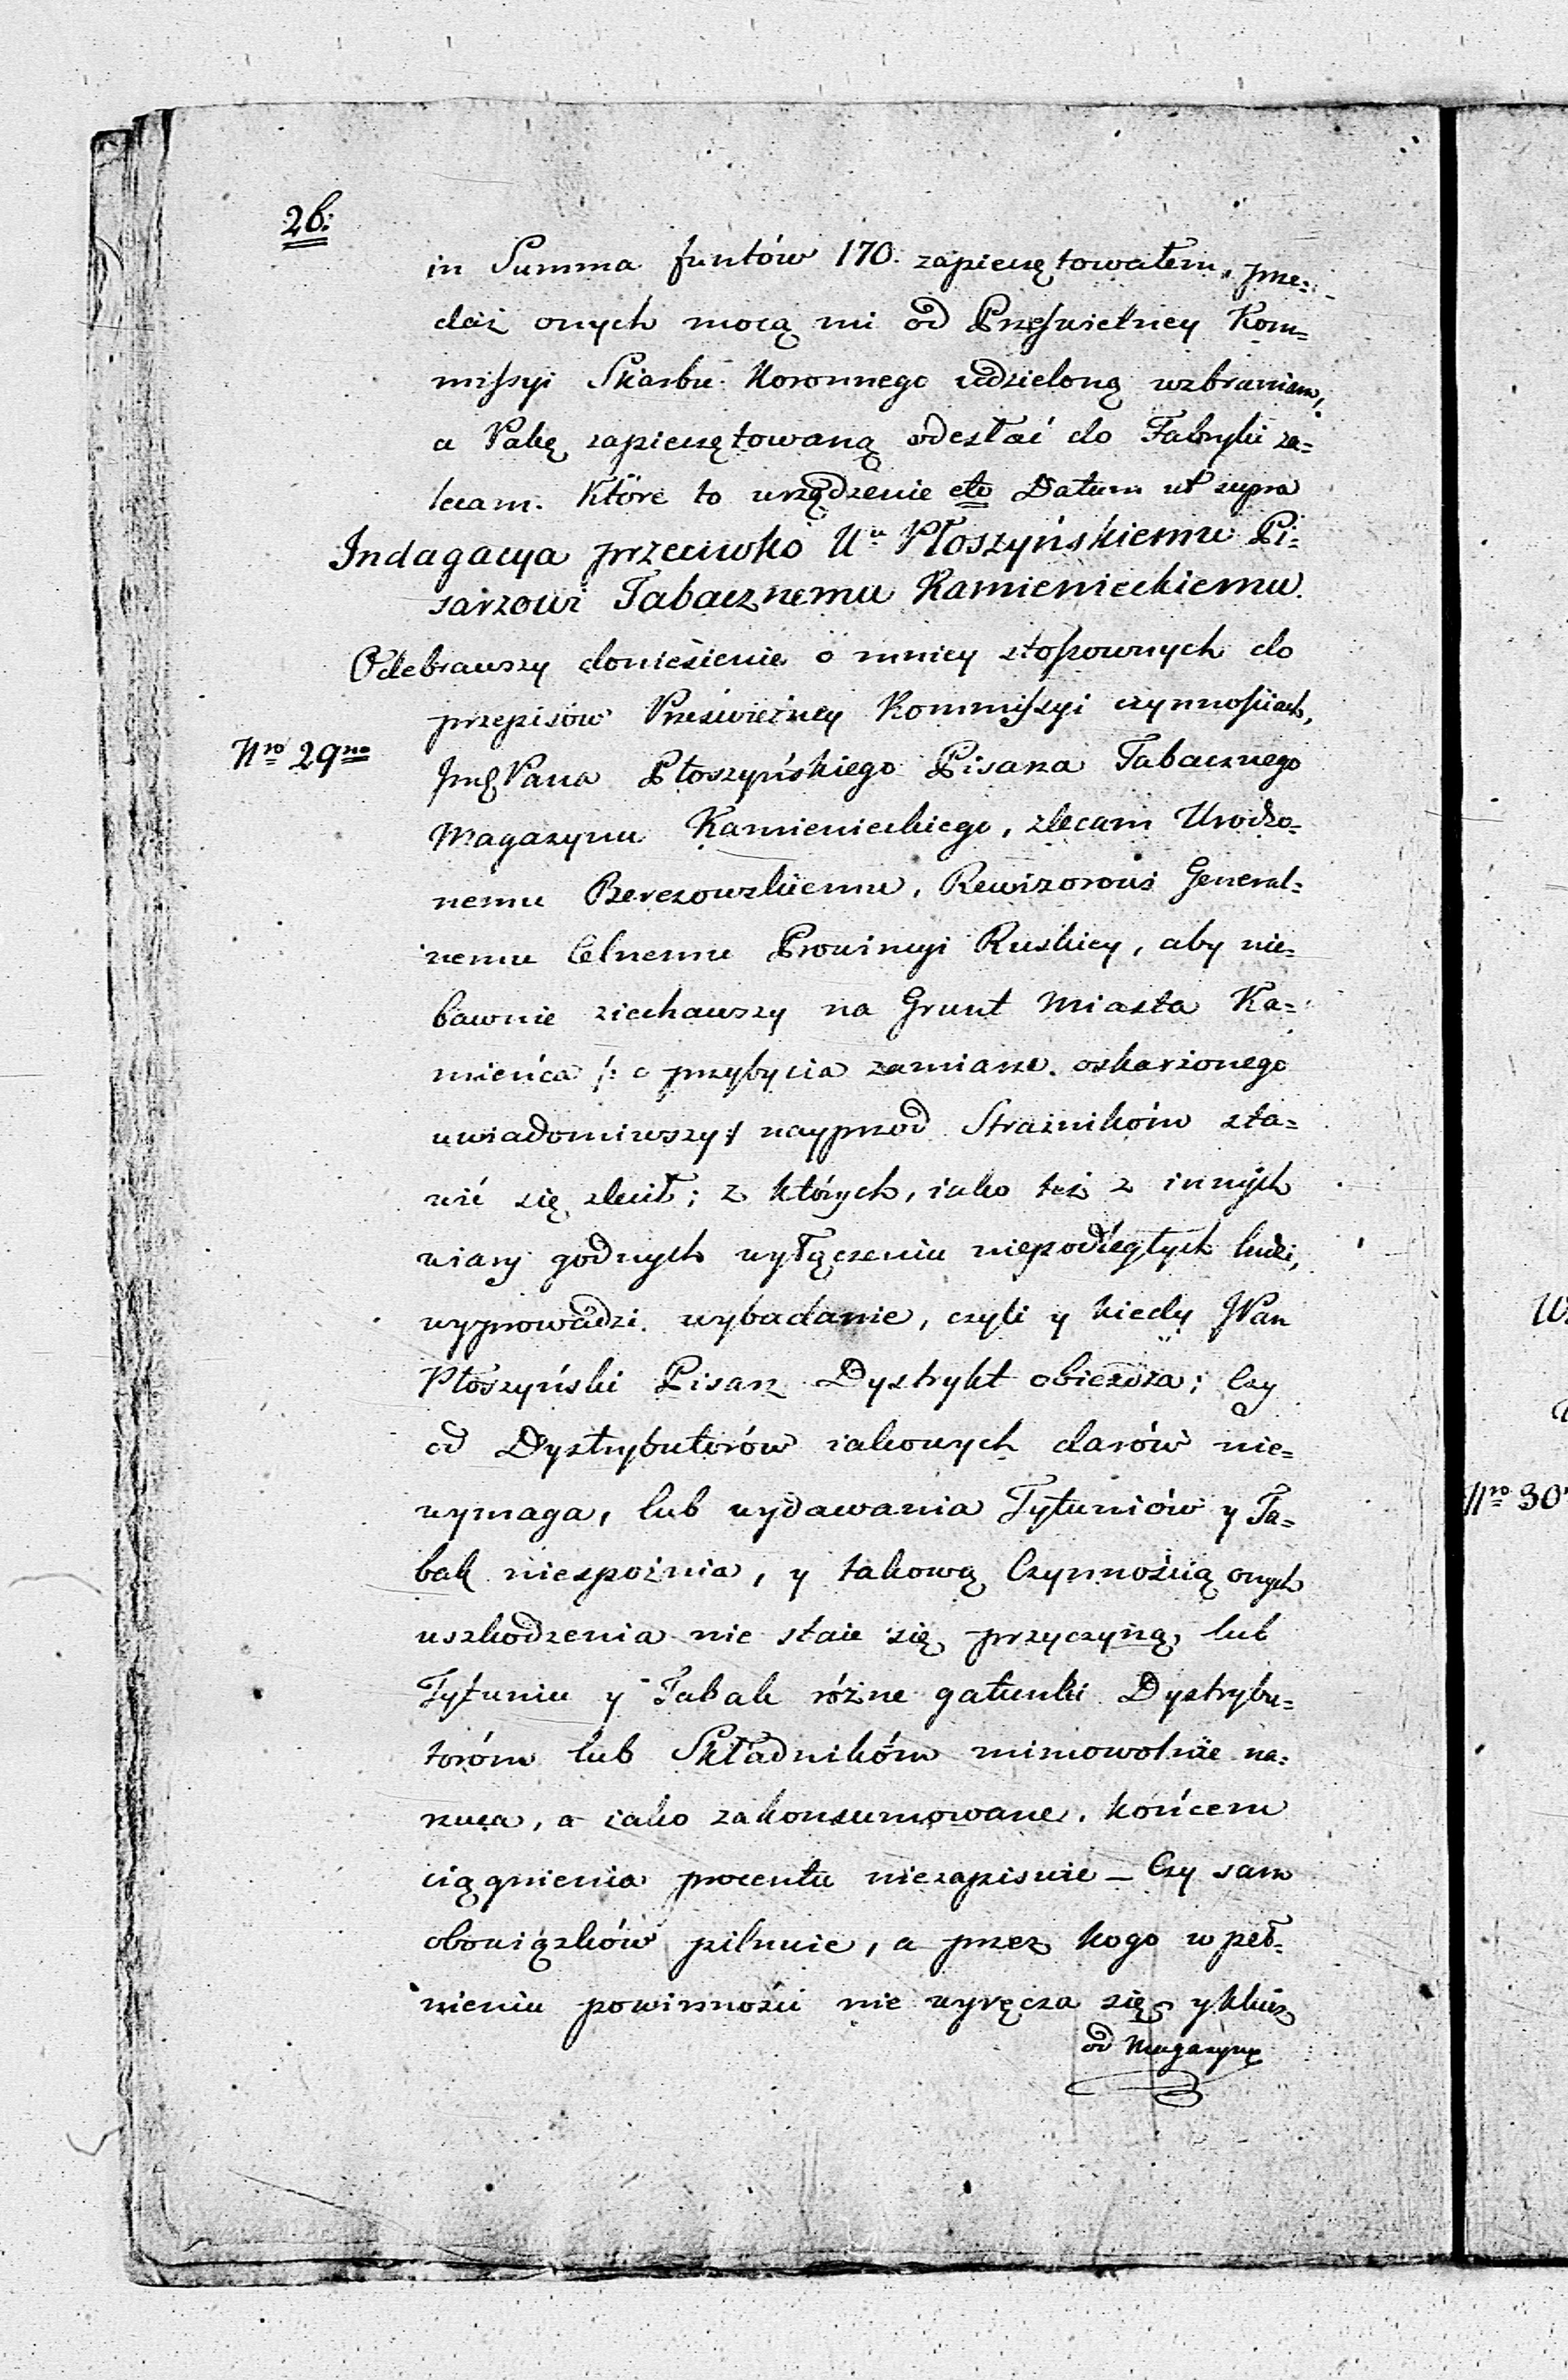 26.
in Summa funtów 170. zapieczętowałem, prze=
daż onych mocą mi od Prześwietney Kom=
missyi Skarbu Koronnego udzieloną wzbraniam,
a Pakę zapieczętowaną odesłać do Fabryki za=
lecam. Które to urządzenie etc Datum ut supra
Indagacya przeciwko Uu Płoszyńskiemu Pi=
sarzowi Tabacznemu Kamienieckiemu.
Odebrawszy doniesienie o mniey stosownych do
przepisów Prześwietney Kommissyi czynnościach,
Nro 29no
Jmć Pana Płoszyńskiego Pisarza Tabacznego
Magazynu Kamienieckiego, zlecam Urodzo=
nemu Berezowskiemu, Rewizorowi General=
nemu Celnemu Prowincyi Ruskiey, aby nie=
bawnie ziechawszy na Grunt Miasta Ka=
mieńca /: o przybycia zamiarze oskarżonego
uwiadomiwszy :/ nayprzod Strażników sta=
wić się zlecił; z których, iako też z innych
wiary godnych wyłączeniu niepodległych ludzi,
wyprowadzi wybadanie, czyli y kiedy JPan
Płoszyński Pisarz Dystrykt obieżdża; Czy
od Dystrybutorów iakowych darów nie=
wymaga, lub wydawania Tytuniów y Ta=
bak niespoźnia, y takową Czynnością onych
uszkodzenia nie staie się przyczyną, lub
Tytuniu y Tabak różne gatunki Dystrybu=
toróm lub Składnikóm mimowolnie na=
rzuca, a iako zakonsumowane końcem
ciągnienia procentu niezapisuie — Czy sam
obowiązków pilnuie, a przez kogo w peł=
nieniu powinności nie wyręcza się, y klucz
od Magazynu
Nro 30